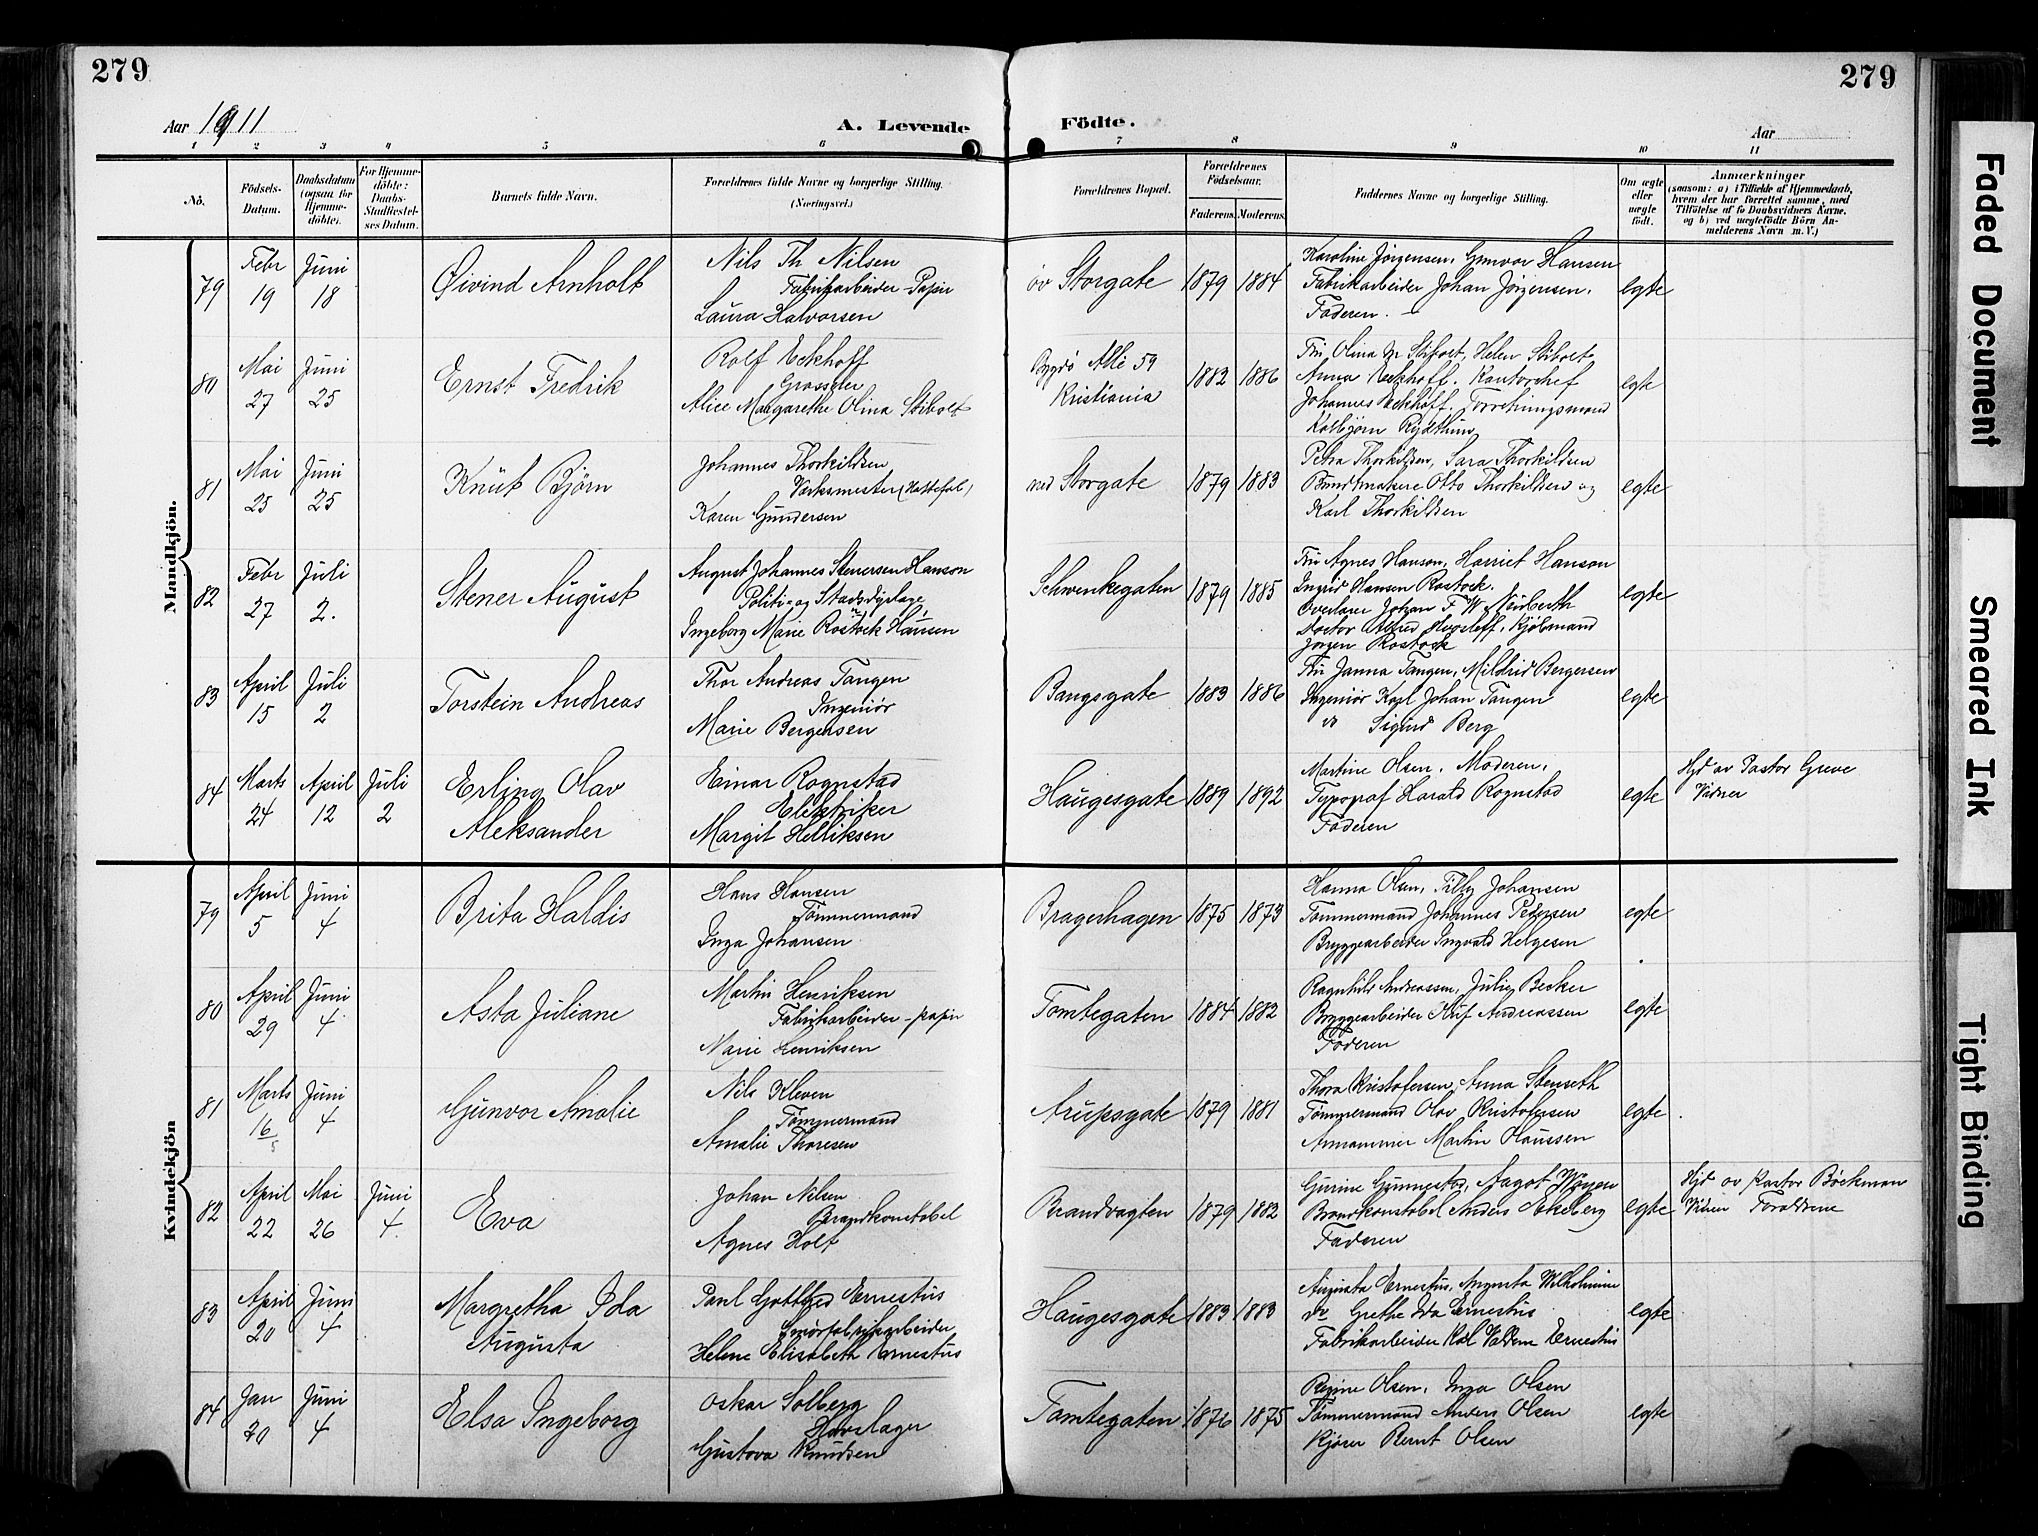 279
279
Aar 1911
A. Levende Födte.
Aar
1 2 3 4 5 6 7 8 9 10 11
No.
Födsels-Datum.
Daabsdatum (ogsaa for Hjemmedöbte).
For Hjemmedöbte: Daabs-Stadfæstelses Datum.
Barnets fulde Navn.
Forældrenes fulde Navne og borgerlige Stilling. (Næringsvei.)
Forældrenes Bopæl.
Forældrenes Födselsaar.
Faderens. Moderens.
Faddernes Navne og borgerlige Stilling.
Om ægte eller uægte født.
Anmærkninger
(saasom: a) i Tilfælde af Hjemmedaab, hvem der har forrettet samme, med Tilföielse af to Daabsvidners Navne, og b) ved uægtefödte Börn Anmelderens Navn m. V.)
Mandkjön.
79 Febr 19 Juni 18 Øivind Arnholt
Nils Th Nilsen
Fabrikarbeider Papir
Laura Halvorsen
öv Storgate 1879 1884
Karoline Jörgensen, Gunvor Hansen
Fabrikarbeider Johan Jörgensen.
Faderen.
egte
80 Mai 27 Juni 25 Ernst Fredrik
Rolf Eckhoff
Grosserer
Alice Margarethe Olina Stibolt
Bygdö Allé 59
Kristiania
1882 1886
Fru Olina Stibolt, Helen Stibolt
Anna Eckhoff. Kontorchef
Johannes Eckhoff. Forretningsmand
Kolbjörn
egte
81 Mai 25 Juni 25 Knut Björn
Johannes Thorkildsen
Verksmester (Hattefab)
Karen Gundersen
ned Storgate 1879 1883
Petra Thorkildsen, Sara Thorkildsen
Bundtmakere Otto Thorkildsen og
Karl Thorkildsen
egte
82 Febr 27 Juli 2. Stener August
August Johannes Stenersen Hanson
Politi- og Stadsdyrlæge
Ingeborg Marie Rostock Hansen
Schwenkegaten 1879 1885
Fru Agnes Hanson, Harriet Hanson
Ingrid Hansen Rostock.
Overlærer Johan F W
Doctor Alfred Kjöbmand
Jörgen Rostock
egte
83 April 15 Juli 2 Torstein Andreas
Thor Andreas Tangen
Ingeniör
Marie Bergersen
Bangsgate 1883 1886
Fru Janna Tangen, Mildrid Bergersen
Ingeniör Karl Johan Tangen
do Sigurd Berg
egte
84 Marts 24 April 12 Juli 2 Erling Olav
Aleksander
Einar Rognstad
Elektriker
Margit Hellriksen
Haugesgate 1889 1892
Martine Olsen. Moderen.
Typograf Harald Rognstad
Faderen
egte
Hjd av Pastor Greve
Vidner
Kvindekjön
79 April 5 Juni 4 Brita Haldis
Hans Hansen
Tömmermand
Inga Johansen
Bragerhagen 1875 1873
Hanna Olsen, Tilly Johansen
Tömmermand Johannes Pedersen
Bryggearbeider Ingvald Helgesen
egte
80 April 29 Juni 4 Asta Juliane
Martin Henriksen
Fabrikarbeider - papir
Marie Henriksen
Tomtegaten 1884 1882
Ragnhild Andreassen, Julie Becker
Bryggearbeider Oluf Andreassen
Faderen
egte
81 Marts 16 Juni 4 Gunvor Amalie
Nils Kleven
Tömmermand
Amalie Thoresen
Arupsgate 1879 1881
Thora Kristofersen, Anna Stenseth
Tömmermand Olav Kristofersen
Martin Claussen
egte
82 April 22 Mai 26 Juni 4. Eva
Johan Nilsen
Brandkonstabel
Agnes Holt
Brandvagten 1879 1882
Gurine Gunnestad, Aagot
Brandkonstabel Anders
Faderen
egte
Hjd av Pastor Böckman
Vidner Foraldrene
83 April 20 Juni 4 Margretha Ida
Augusta
Paul Gottfred Ernestus
Smörfabrikarbeider
Helene Elisabeth Ernestus
Haugesgate 1883 1883
Augusta Ernestus, Augusta Wilhelmine
do Grethe Ida Ernestus
Fabrikarbeider Karl Ernestus
egte
84 Jan 20 Juni 4 Elsa Ingeborg
Oskar Solberg
Hovslager
Gustava Knudsen
Tomtegaten 1876 1875
Regine Olsen, Inga Olsen
Tömmermand Anders Olsen
Kjörer Bernt Olsen
egte
Faded Document
Smeared Ink
Tight Binding